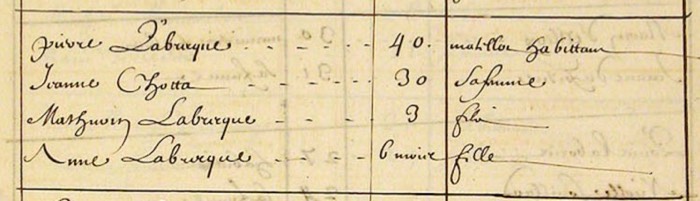 pierre Laburque 40. matellot habittant
Jeanne Chotta 30 Sa femme
Mathurin Laburque 3 filz
Anne Laburque 6 mois fille